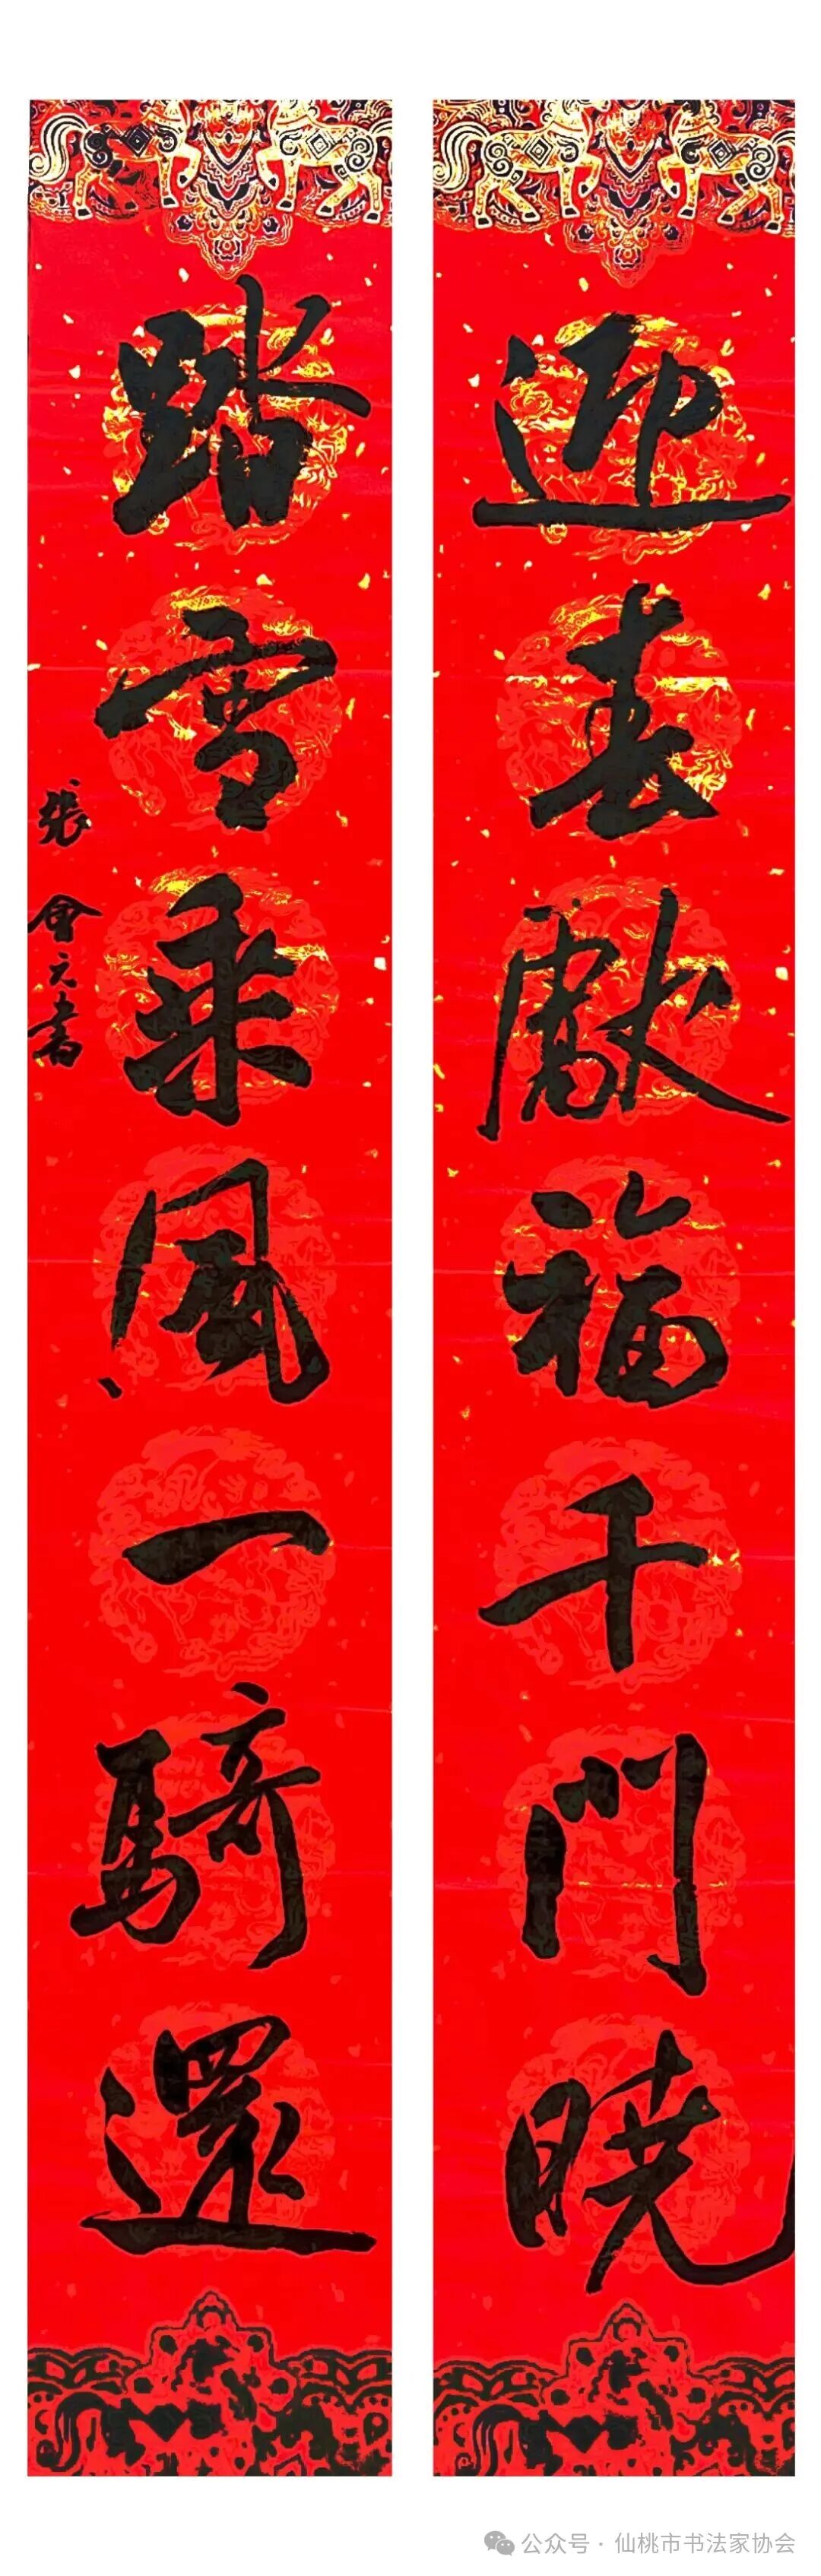 迎春獻福千門曉
踏雪乘風一騎還
張會元書
公众号 · 仙桃市书法家协会